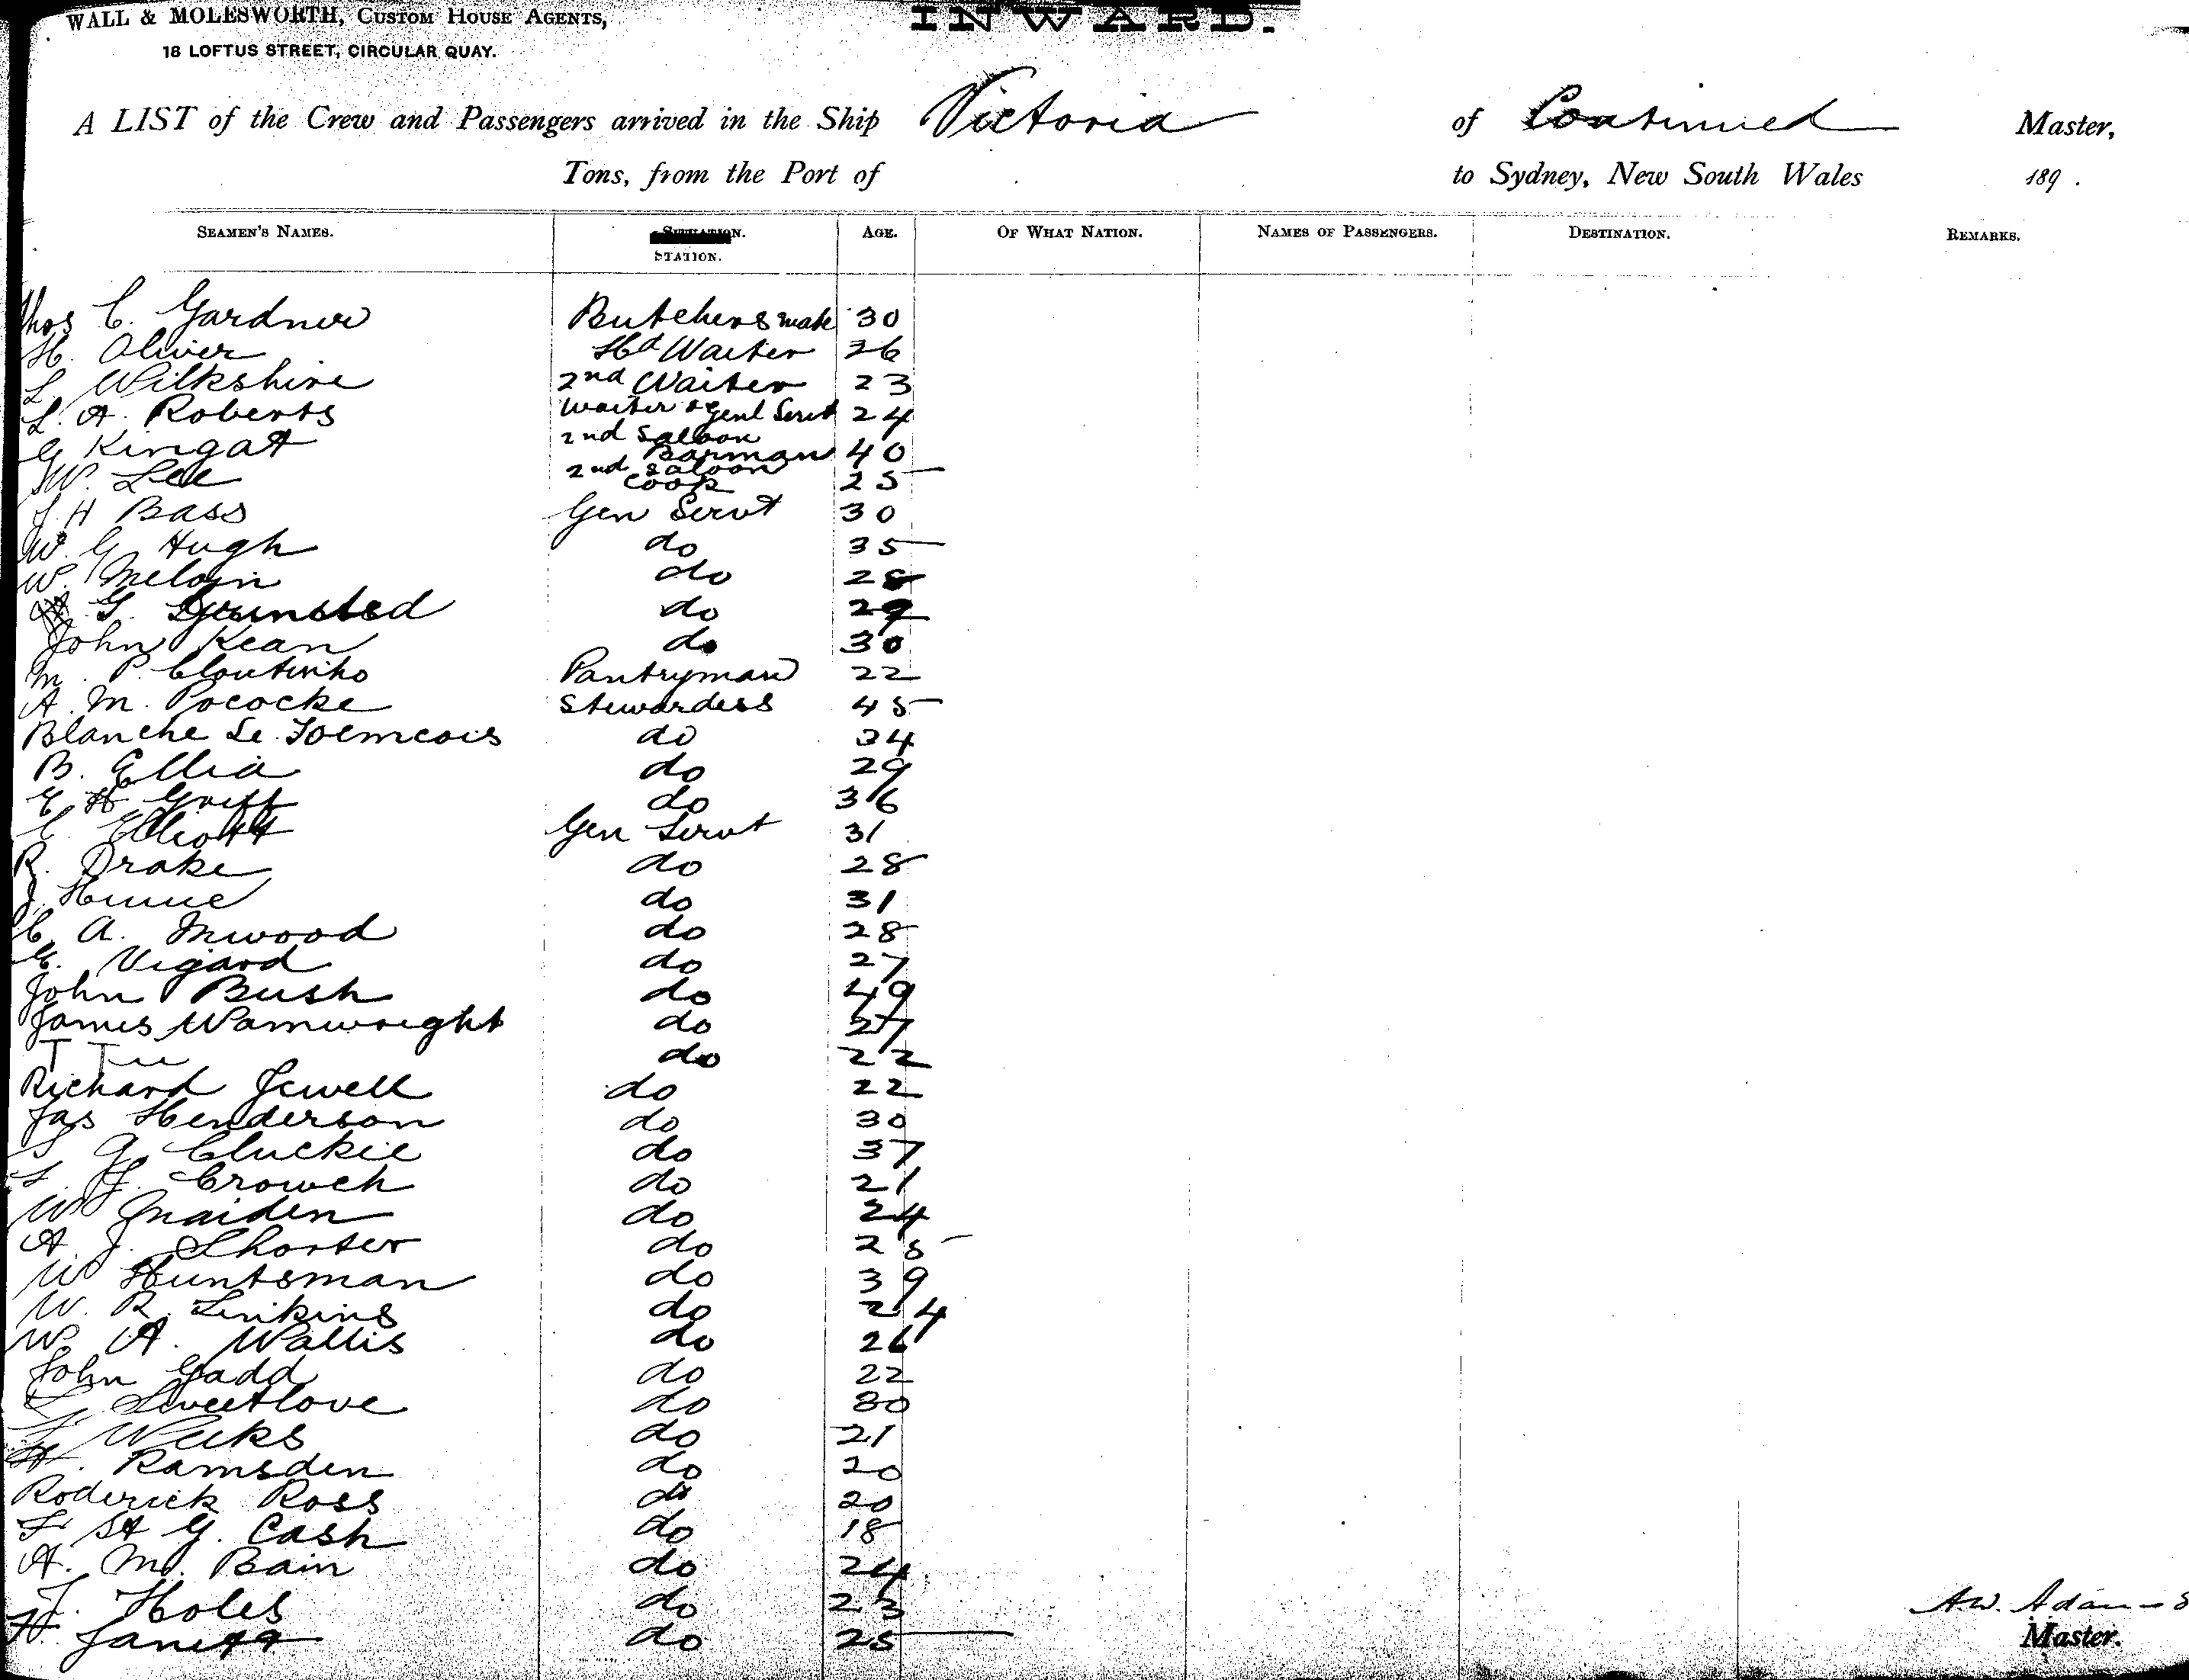 WALL & MOLESWORTH, CUSTOM HOUSE AGENTS,
18 LOFTUS STREET, CIRCULAR QUAY.
INWARD.
A LIST of the Crew and Passengers arrived in the Ship Victoria of Continued Master,
Tons, from the Port of to Sydney, New South Wales 189 .
SEAMEN'S NAMES. STATION. AGE. OF WHAT NATION. NAMES OF PASSENGERS. DESTINATION. REMARKS.
Thos C. Gardner Butchers mate 30
H. Oliver Hd Waiter 26
L. Wilkshire 2nd Waiter 23
L. A. Roberts Waiter & Genl Servt 24
G Kingat 2nd Saloon Barman 40
W. Lee 2nd Saloon Cook 25
J H Bass Gen Servt 30
W. G Hugh do 35
W. Melvin do 28
G. Grunsted do 29
John Kean do 30
M. P. Cloutinho Pantryman 22
A. M. Pococke Stewardess 45
Blanche Le do 34
B. Ellia do 29
E H Griff do 36
C. Elliott Gen Servt 31
R. Drake do 28
J. Hunne do 31
C. A. Inwood do 28
G. Vigard do 27
John Bush do 49
James Wamwright do 27
T do 22
Richard Jewell do 22
Jas Henderson do 30
G. Cluckie do 37
Crowch do 21
W Maiden do 24
A J. Shorter do 25
W Huntsman do 39
W. R. Linkins do 24
W. A. Wallis do 26
John Gadd do 22
Sweetlove do 30
Weeks do 21
H. Ramsden do 20
Roderick Ross do 20
F St G. Cash do 18
A. M. Bain do 24
J. Holes do 23
H. Janett do 25
A.W. Adams
Master.